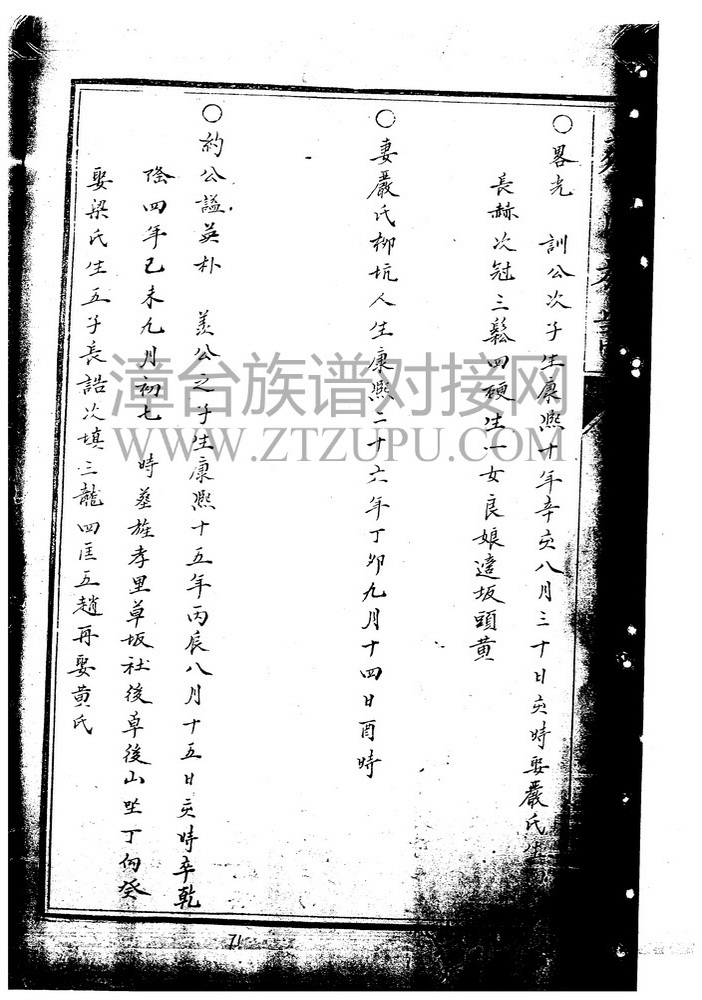 ○畧光 訓公次子生康熙十年辛亥八月三十日亥時娶嚴氏生
長赫次冠三鬆四硬生一女良娘適坂頭黄
○妻嚴氏柳坑人生康熙二十六年丁卯九月十四日酉時
○約公謚英朴 羡公之子生康熙十五年丙辰八月十五日亥時卒乾
隆四年己未九月初七 時葬旌孝里草坂社後卓後山坐丁向癸
娶梁氏生五子長誥次填三龍四匡五趙再娶黄氏
71
漳台族谱对接网
WWW.ZTZUPU.COM